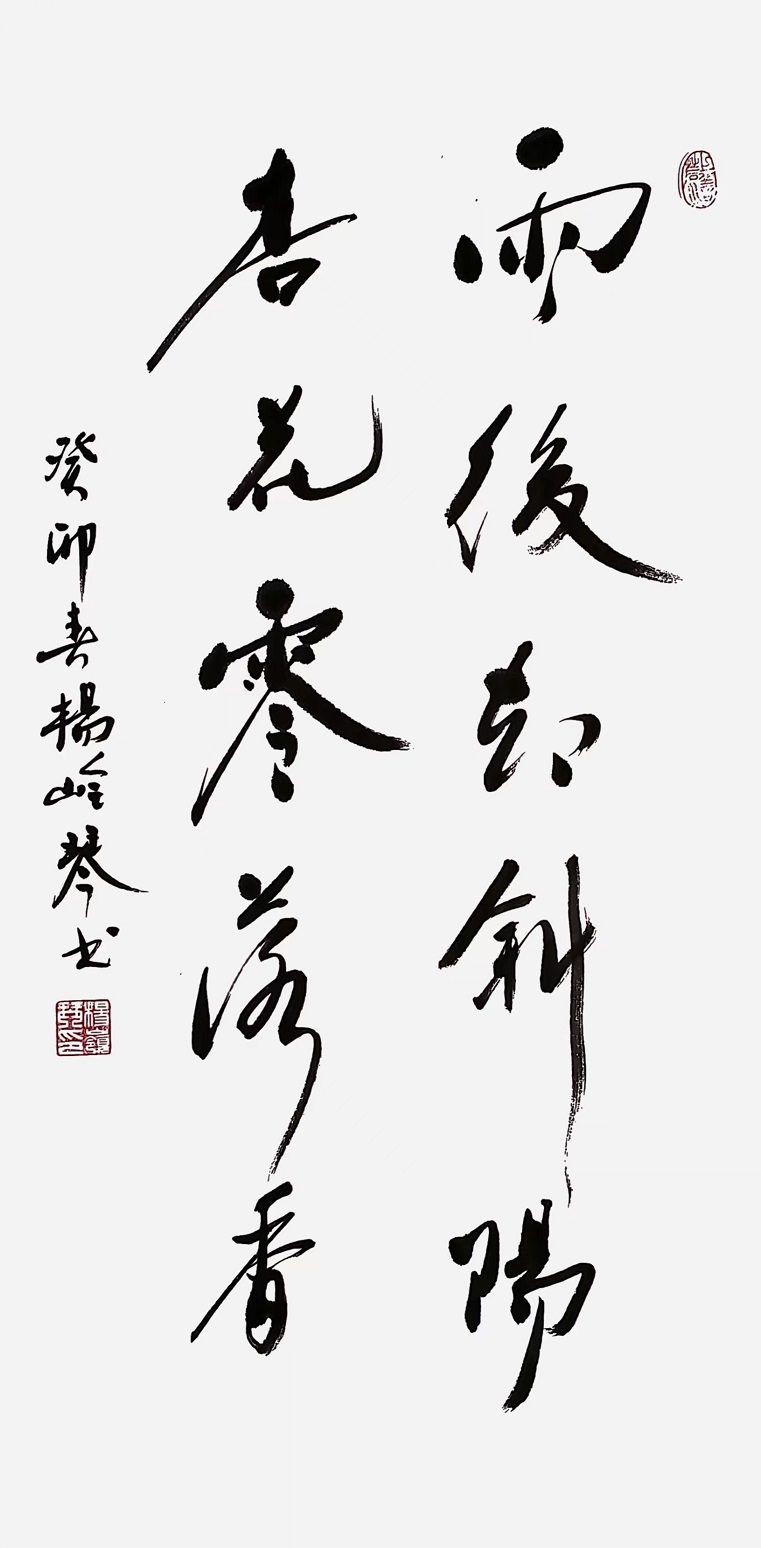 雨後却斜陽
杏花零落香
癸卯春楊崯琴书